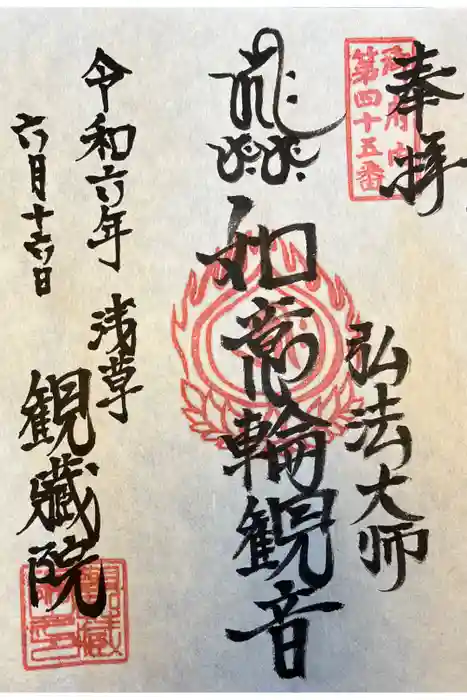 奉拝
御府内
第四十五番
弘法大師
如意輪観音
令和六年
六月十六日
浅草
観蔵院